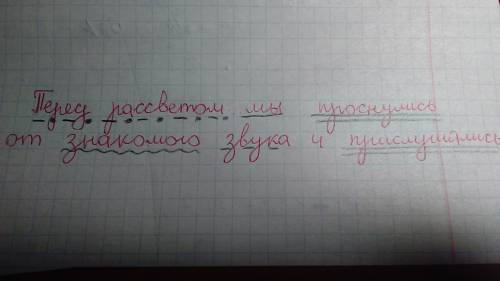 Перед рассветом мы проснулись
от знакомого звука и прислушались